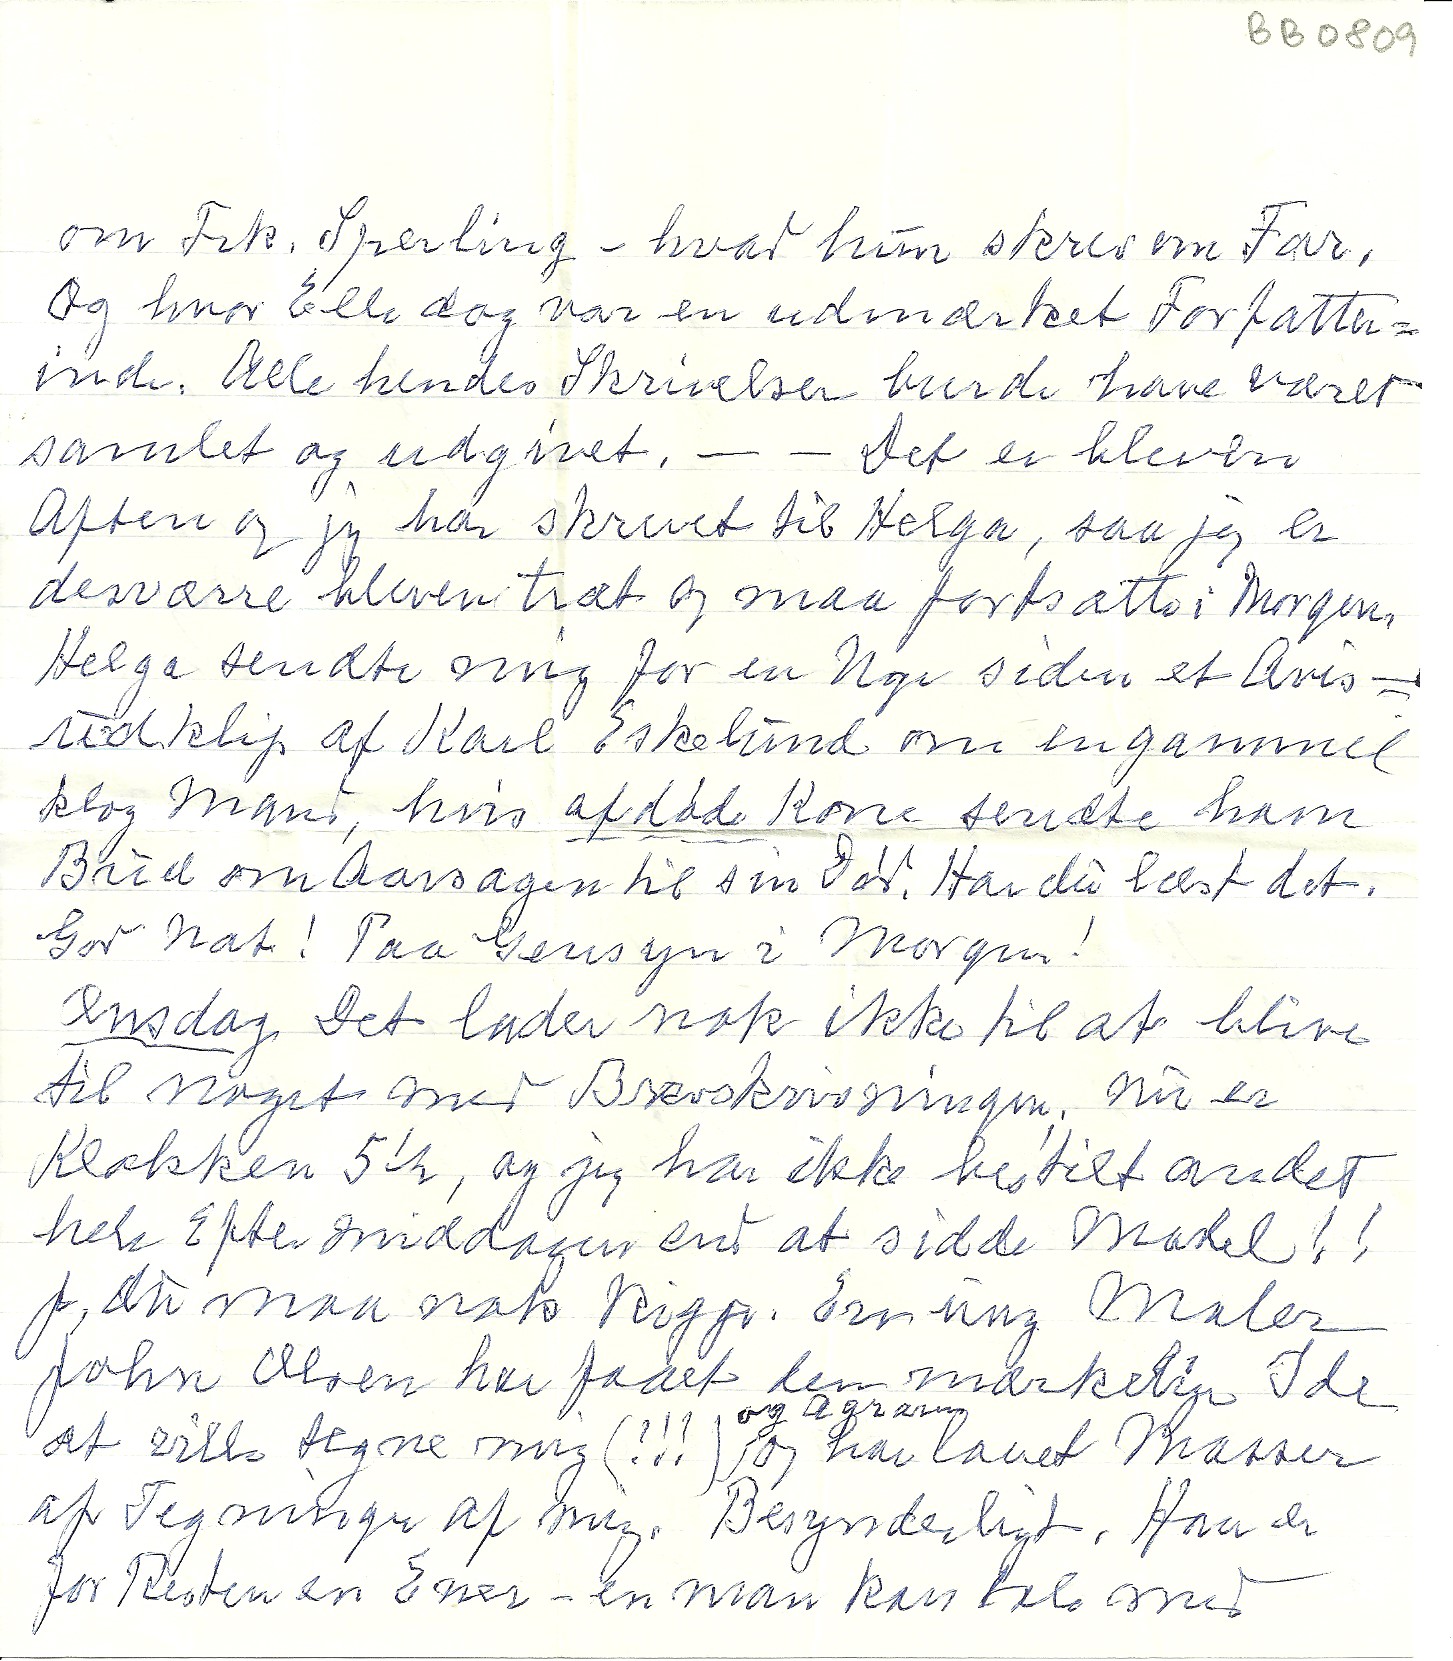 BB0809
om Frk. Sperling – hvad hun skrev om Far.
Og hvor Elle dog var en udmærket Forfatter=
inde. Alle hendes Skrivelser burde have været
samlet og udgivet. — — Det er bleven
Aften og jeg har skrevet til Helga, saa jeg er
desværre bleven træt og maa fortsætte i Morgen.
Helga sendte mig for en Uge siden et Avis=
udklip af Karl Eskelund om en gammel
klog Mand, hvis afdøde Kone sendte ham
Bud om Aarsagen til sin Død. Har du læst det.
God Nat! Paa Gensyn i Morgen!
Onsdag Det lader nok ikke til at blive
til noget med Brevskrivningen. Nu er
Klokken 5½, og jeg har ikke bestilt andet
hele Eftermiddagen end at sidde Model!!
J, du maa nok kigge. En ung Maler
John Olsen har faaet den mærkelige Ide
at ville tegne mig (!!!) og har lavet Masser
af Tegninger af mig. Besynderligt. Han er
for Resten en Ener – en man kan tale med